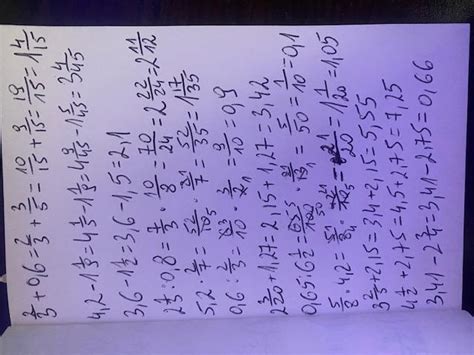 2/3 + 0,6 = 2/3 + 3/5 = 10/15 + 9/15 = 19/15 = 1 4/15
4,2 - 1 = 4 - 1 = 4 9/45 - 1 5/45 = 3 4/45
3,6 - 1 1/2 = 3,6 - 1,5 = 2,1
2 1/3 : 0,8 = 7/3 · 10/8 = 70/24 = 2 22/24 = 2 11/12
5,2 · 2/7 = 52/10 · 2/7 = 52/35 = 1 17/35
0,6 : 2/3 = 10 · 3/2 = 9/10 = 0,9
2 3/20 + 1,27 = 2,15 + 1,27 = 3,42
0,65 : 6 1/2 = 65/100 · = 50 = 1/10 = 0,1
4,2 = 20 = 1 1/20 = 1,05
3 2/5 + 2,15 = 3,4 + 2,15 = 5,55
4 1/2 + 2,75 = 4,5 + 2,75 = 7,25
3,41 - 2 3/4 = 3,41 - 2,75 = 0,66